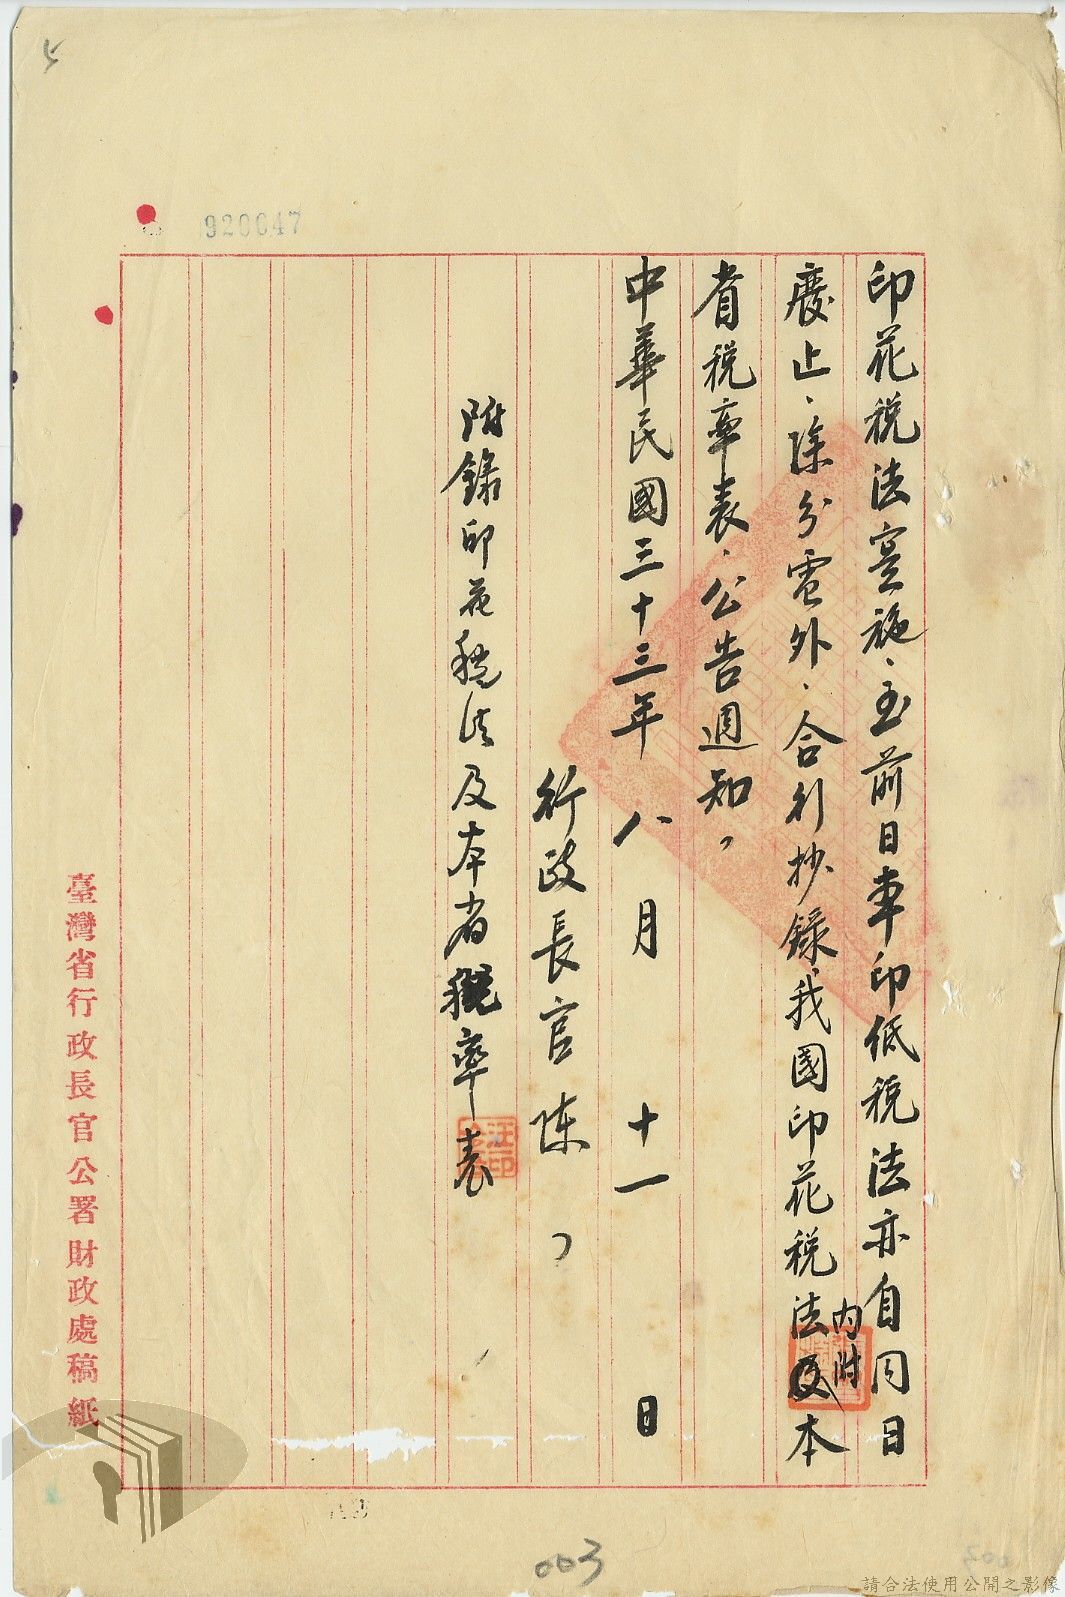 印花税法实施、至前日車印低税法亦自同日
廢止、除分電外、合行抄錄我國印花税法及本
內附
省税率表、公告週知，
中華民國三十三年 八 月 十一 日
行政長官陳
附錄印花税法及本省税率表
汪印
臺灣省行政長官公署財政處稿紙
920047
5
003
請合法使用公開之影像